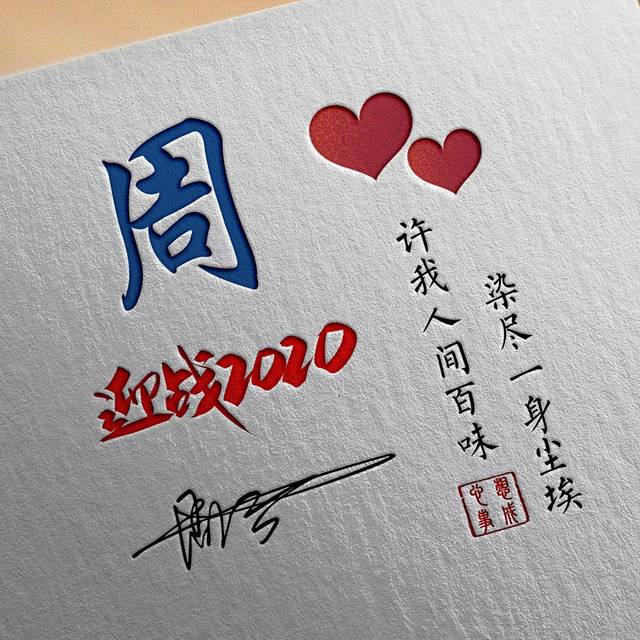 周
迎战2020
许我人间百味
染尽一身尘埃
心想事成